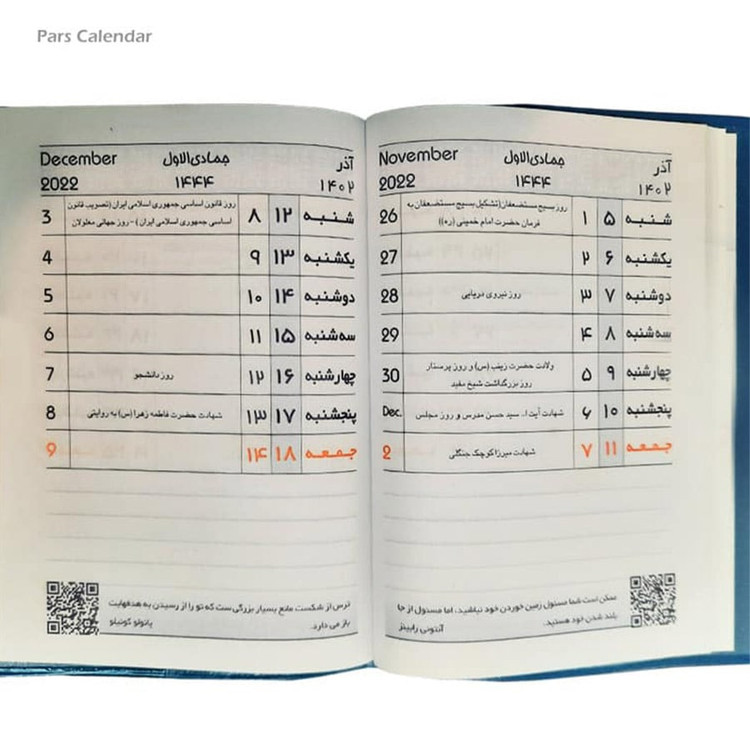 Pars Calendar
آذر جمادی‌الاول November
۱۴۰۲ ۱۴۴۴ 2022
شنبه ۵ ۱ روز بسیج مستضعفان(تشکیل بسیج مستضعفان به 26
فرمان حضرت امام خمینی (ره))
یکشنبه ۶ ۲ 27
دوشنبه ۷ ۳ روز نیروی دریایی 28
سه شنبه ۸ ۴ 29
چهارشنبه ۹ ۵ ولادت حضرت زینب (س) و روز پرستار 30
روز بزرگداشت شیخ مفید
پنجشنبه ۱۰ ۶ شهادت آیت ا... سید حسن مدرس و روز مجلس Dec.
جمعه ۱۱ ۷ شهادت میرزا کوچک جنگلی 2
ممکن است شما مسئول زمین خوردن خود نباشید، اما مسئول از جا
بلند شدن خود هستید. آنتونی رابینز
آذر جمادی‌الاول December
۱۴۰۲ ۱۴۴۴ 2022
شنبه ۱۲ ۸ روز قانون اساسی جمهوری اسلامی ایران (تصویب قانون 3
اساسی جمهوری اسلامی ایران) - روز جهانی معلولان
یکشنبه ۱۳ ۹ 4
دوشنبه ۱۴ ۱۰ 5
سه شنبه ۱۵ ۱۱ 6
چهارشنبه ۱۶ ۱۲ روز دانشجو 7
پنجشنبه ۱۷ ۱۳ شهادت حضرت فاطمه زهرا (س) به روایتی 8
جمعه ۱۸ ۱۴ 9
ترس از شکست مانع بسیار بزرگی ست که تو را از رسیدن به هدفهایت
باز می دارد. پائولو کوئیلو